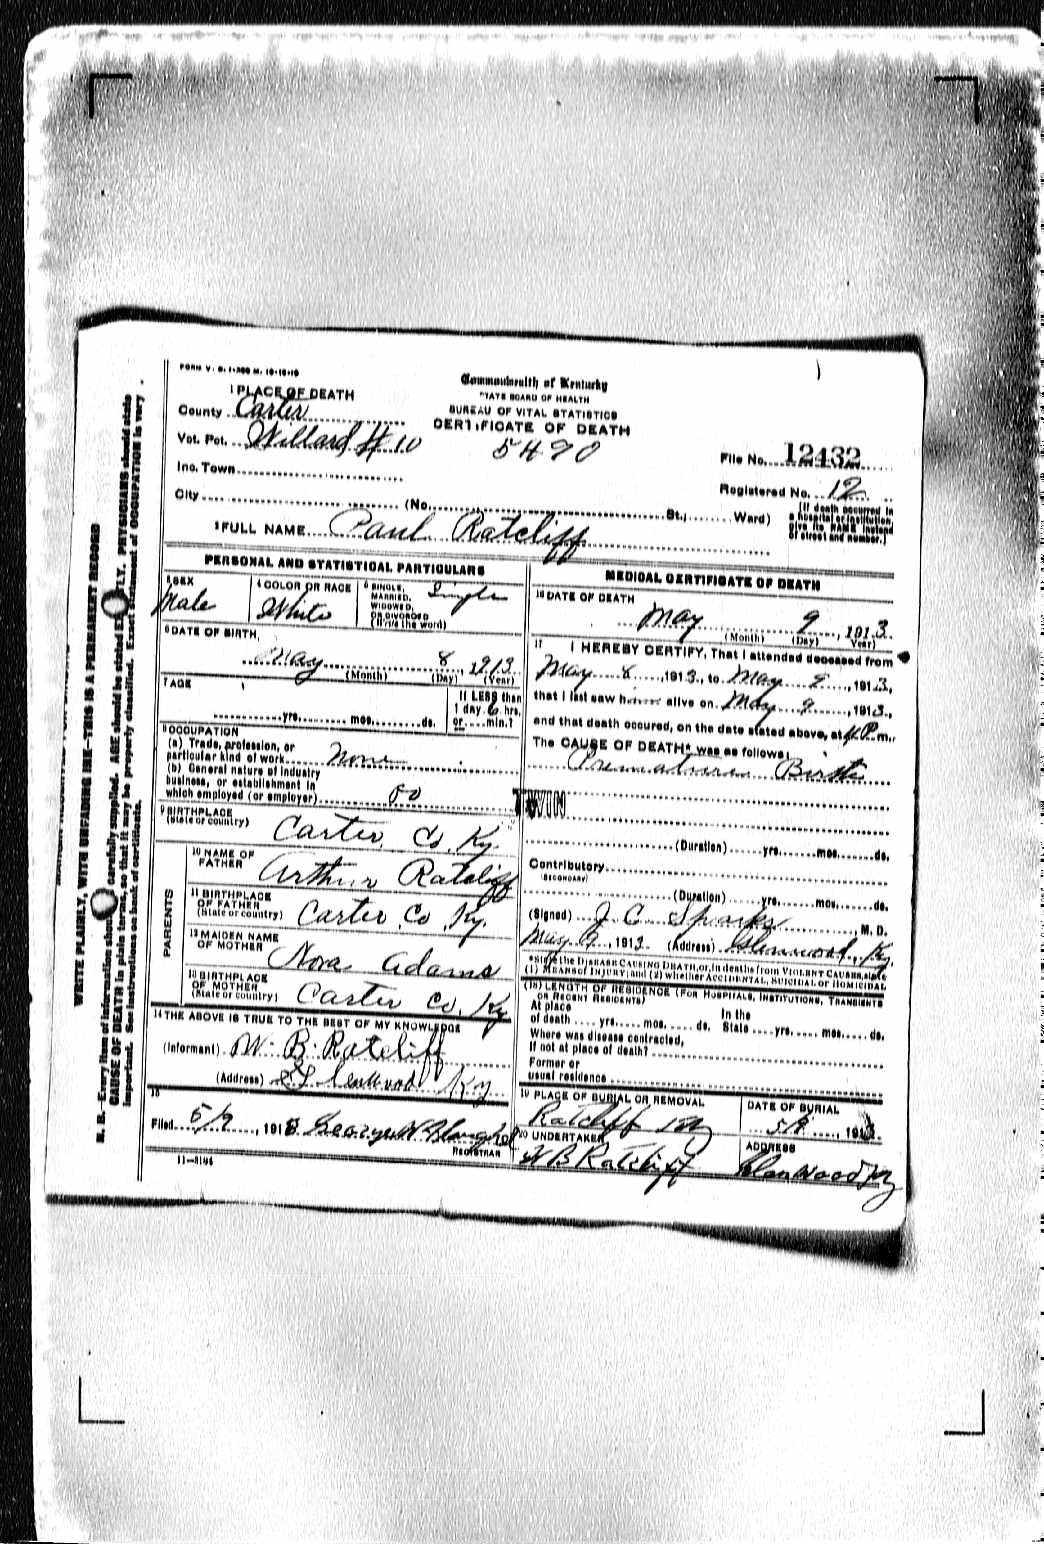 FORM V. S. 1-
Commonwealth of Kentucky
STATE BOARD OF HEALTH
BUREAU OF VITAL STATISTICS
CERTIFICATE OF DEATH
5490
1 PLACE OF DEATH
County Carter
Vot. Pct. Willard # 10
Inc. Town
City (No. St.; Ward)
File No. 12432
Registered No. 12
(If death occurred in a hospital or institution, give its NAME instead of street and number.)
2 FULL NAME Paul Ratcliff
PERSONAL AND STATISTICAL PARTICULARS
3 SEX Male
4 COLOR OR RACE White
5 SINGLE, MARRIED, WIDOWED, OR DIVORCED (Write the word) Single
6 DATE OF BIRTH, May 8, 1913
(Month) (Day) (Year)
7 AGE yrs. mos. ds.
If LESS than 1 day, 6 hrs. or min.?
8 OCCUPATION
(a) Trade, profession, or particular kind of work None
(b) General nature of industry business, or establishment in which employed (or employer)
9 BIRTHPLACE (State or country) Carter Co. Ky.
PARENTS
10 NAME OF FATHER Arthur Ratcliff
11 BIRTHPLACE OF FATHER (State or country) Carter Co. Ky.
12 MAIDEN NAME OF MOTHER Nora Adams
13 BIRTHPLACE OF MOTHER (State or country) Carter Co. Ky
14 THE ABOVE IS TRUE TO THE BEST OF MY KNOWLEDGE
(Informant) W. B. Ratcliff
(Address) Ky
15
Filed 5/9, 1913 George W
REGISTRAR
11-3184
MEDICAL CERTIFICATE OF DEATH
16 DATE OF DEATH
May 9, 1913
(Month) (Day) Year)
17 I HEREBY CERTIFY, That I attended deceased from
May 8, 1913, to May 9, 1913,
that I last saw h alive on May 9, 1913,
and that death occured, on the date stated above, at 4 P m.
The CAUSE OF DEATH* was as follows:
Premature Birth
TWIN
(Duration) yrs. mos. ds.
Contributory
(SECONDARY)
(Duration) yrs. mos. ds.
(Signed) J. C. Sparks, M. D.
May 9, 1913 (Address) Glenwood, Ky.
*State the DISEASE CAUSING DEATH, or, in deaths from VIOLENT CAUSES, state
(1) MEANS of INJURY; and (2) whether ACCIDENTAL, SUICIDAL or HOMICIDAL
(18) LENGTH OF RESIDENCE (FOR HOSPITALS, INSTITUTIONS, TRANSIENTS OR RECENT RESIDENTS)
At place of death yrs. mos. ds. In the State yrs. mos. ds.
Where was disease contracted, If not at place of death?
Former or usual residence
19 PLACE OF BURIAL OR REMOVAL
Ratcliff
DATE OF BURIAL
5/9, 1913
20 UNDERTAKER
W B Ratcliff
ADDRESS
Glenwood Ky
WRITE PLAINLY, WITH UNFADING INK—THIS IS A PERMANENT RECORD
N. B.—Every item of information should be carefully supplied. AGE should be stated EXACTLY. PHYSICIANS should state
CAUSE OF DEATH in plain terms, so that it may be properly classified. Exact statement of OCCUPATION is very
important. See instructions on back of certificate.